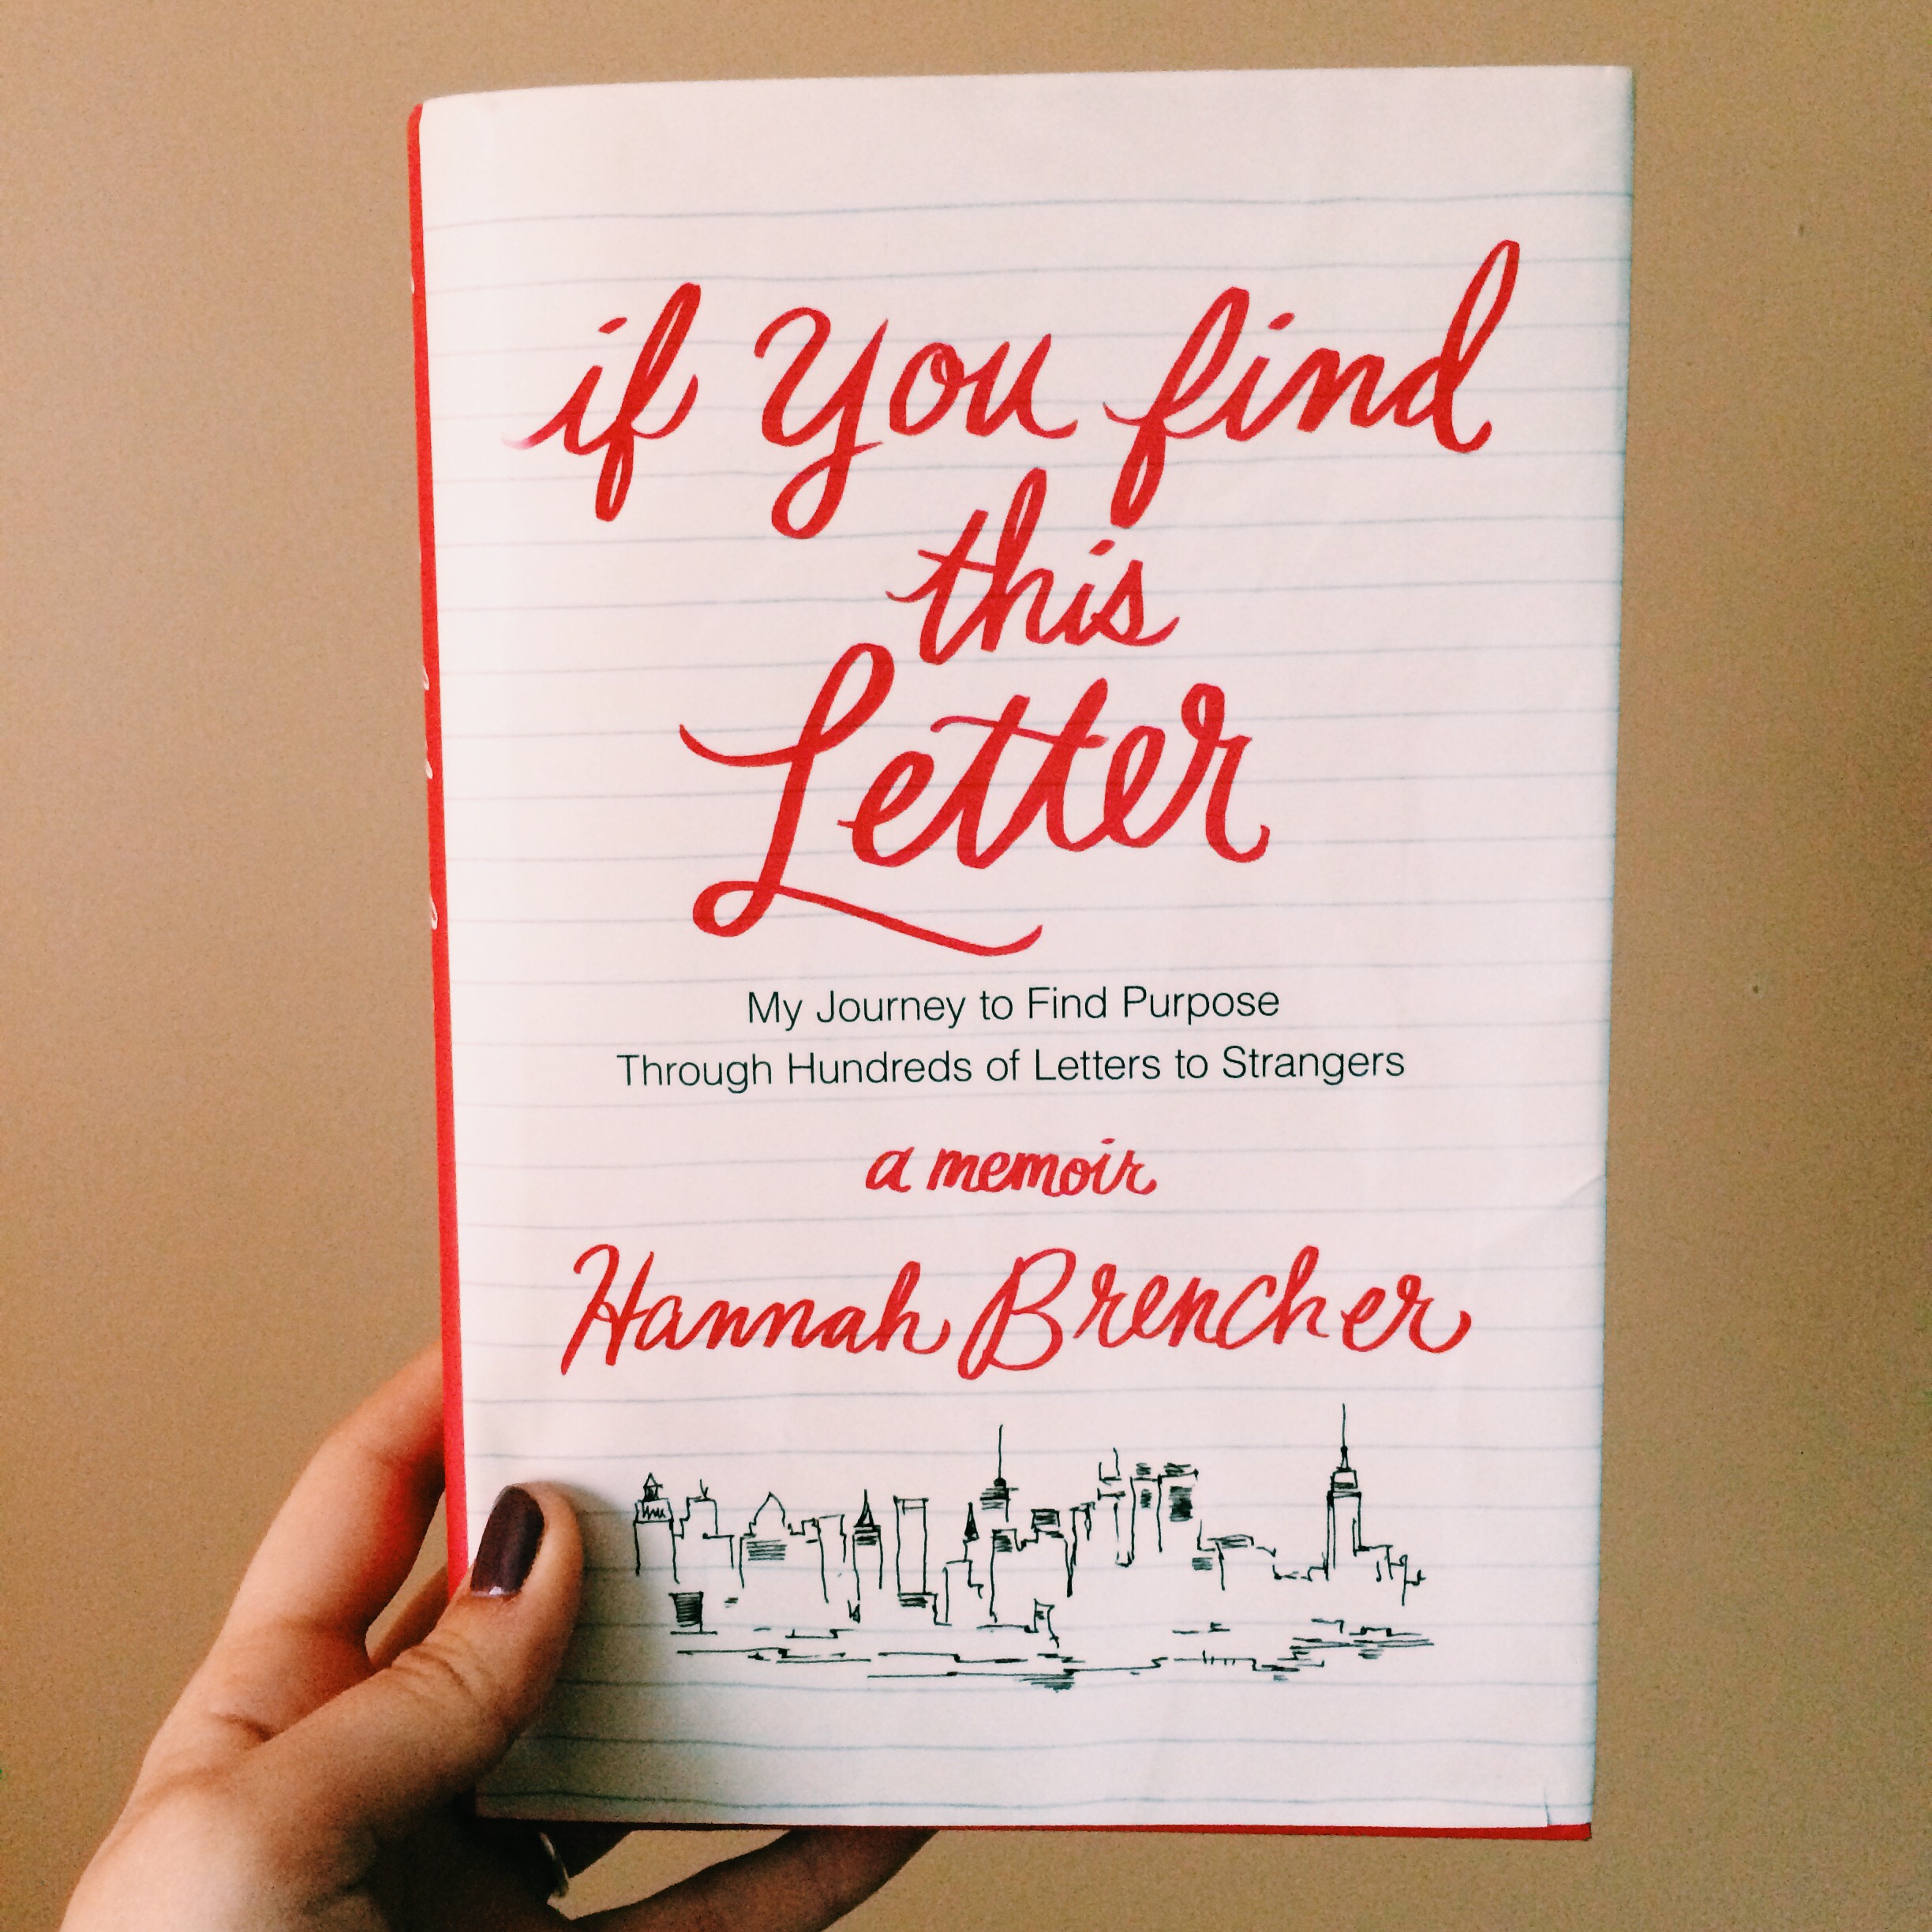 if You find
this
Letter
My Journey to Find Purpose
Through Hundreds of Letters to Strangers
a memoir
Hannah Brencher